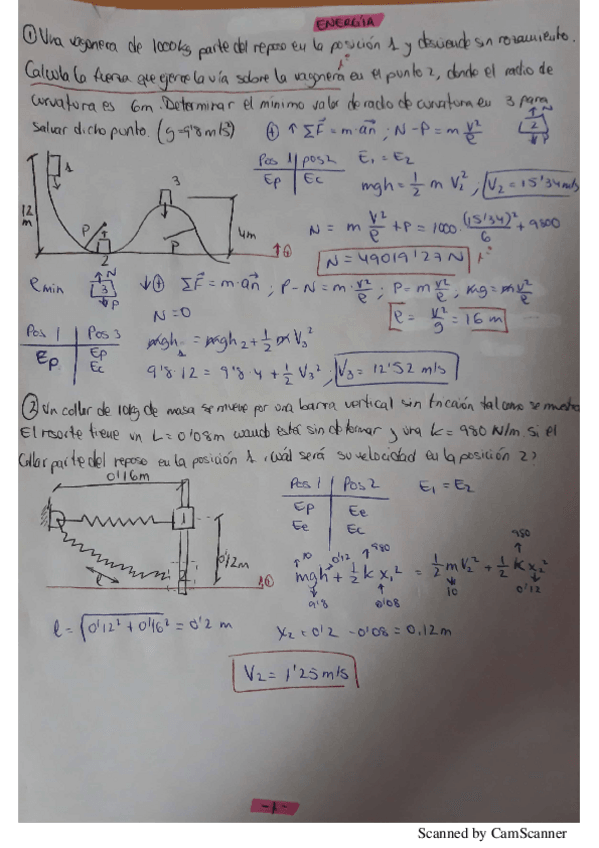 ENERGÍA
① Una vagoneta de 1000kg parte del reposo en la posición 1 y desciende sin rozamiento.
Calcula la fuerza que ejerce la vía sobre la vagoneta en el punto 2, donde el radio de
curvatura es 6m. Determinar el mínimo valor de radio de curvatura en 3 para
salvar dicho punto. (g=9'8 m/s²)
⊕ ↑ ΣF = m·an ; N-P = m v²/ρ
N 2 P
Pos 1 | Pos 2
Ep | Ec
E1 = E2
mgh = 1/2 m V2² , V2 = 15'34 m/s
N = m v²/ρ + P = 1000 · (15'34)²/6 + 9800
N = 49019'27 N
1 12 m ρ 2 3 ρ 4m ⊕
ρ min N 3 P ↓⊕ ΣF = m·an ; P-N = m·v²/ρ ; P = m v²/ρ , mg = m v²/ρ
N=0
ρ = v²/g = 16 m
Pos 1 | Pos 3
Ep | Ep
Ec
mgh1 = mgh2 + 1/2 m V3²
9'8·12 = 9'8·4 + 1/2 V3² , V3 = 12'52 m/s
② Un collar de 10kg de masa se mueve por una barra vertical sin fricción tal como se muestra
El resorte tiene un L=0'08m cuando está sin deformar y una k = 980 N/m. Si el
collar parte del reposo en la posición 1 ¿Cuál será su velocidad en la posición 2?
0'16m
Pos 1 | Pos 2
Ep | Ee
Ee | Ec
E1 = E2
1 0'12m 2 ⊕
10 0'12 980 980
mgh + 1/2 k x1² = 1/2 m V2² + 1/2 k x2²
9'8 0'08 10 0'12
l = √0'12² + 0'16² = 0'2 m
x2 = 0'2 - 0'08 = 0.12m
V2 = 1'25 m/s
-1-
Scanned by CamScanner